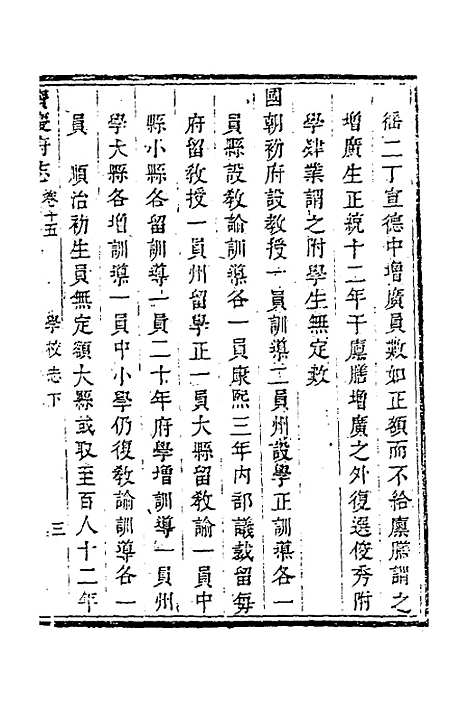 徭二丁宣德中增廣員數如正額而不給廩膳謂之
增廣生正統十二年于廩膳增廣之外復選俊秀附
學肄業謂之附學生無定數
國朝初府設教授一員訓導二員州設學正訓導各一
員縣設教諭訓導各一員康熙三年內部議裁留每
府留教授一員州留學正一員大縣留教諭一員中
縣小縣各留訓導一員二十年府學增訓導一員州
學大縣各增訓導一員中小學仍復教諭訓導各一
員 順治初生員無定額大縣或取至百人十二年
慶府志 卷十五 學校志下 三